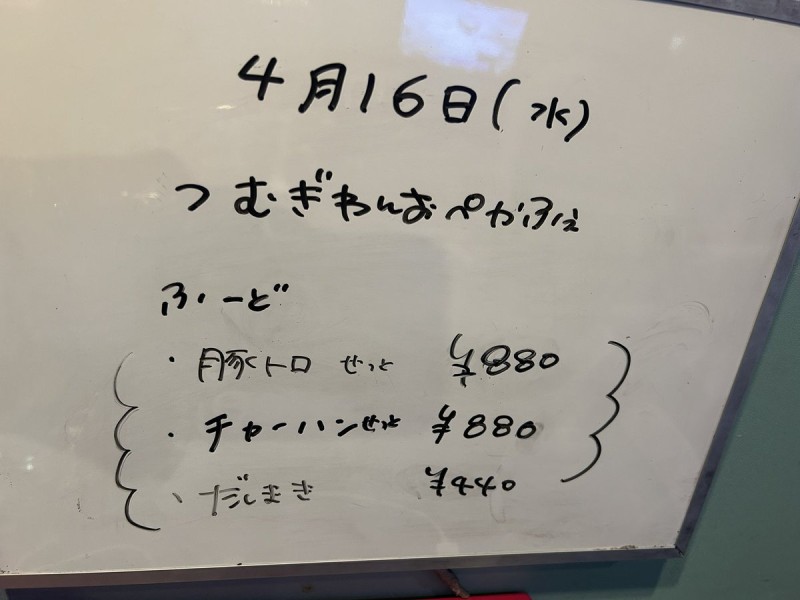 4月16日(水)
つむぎわんおぺかふぇ
ふーど
・豚トロ せっと ¥880
・チャーハンせっと ¥880
・だしまき ¥440